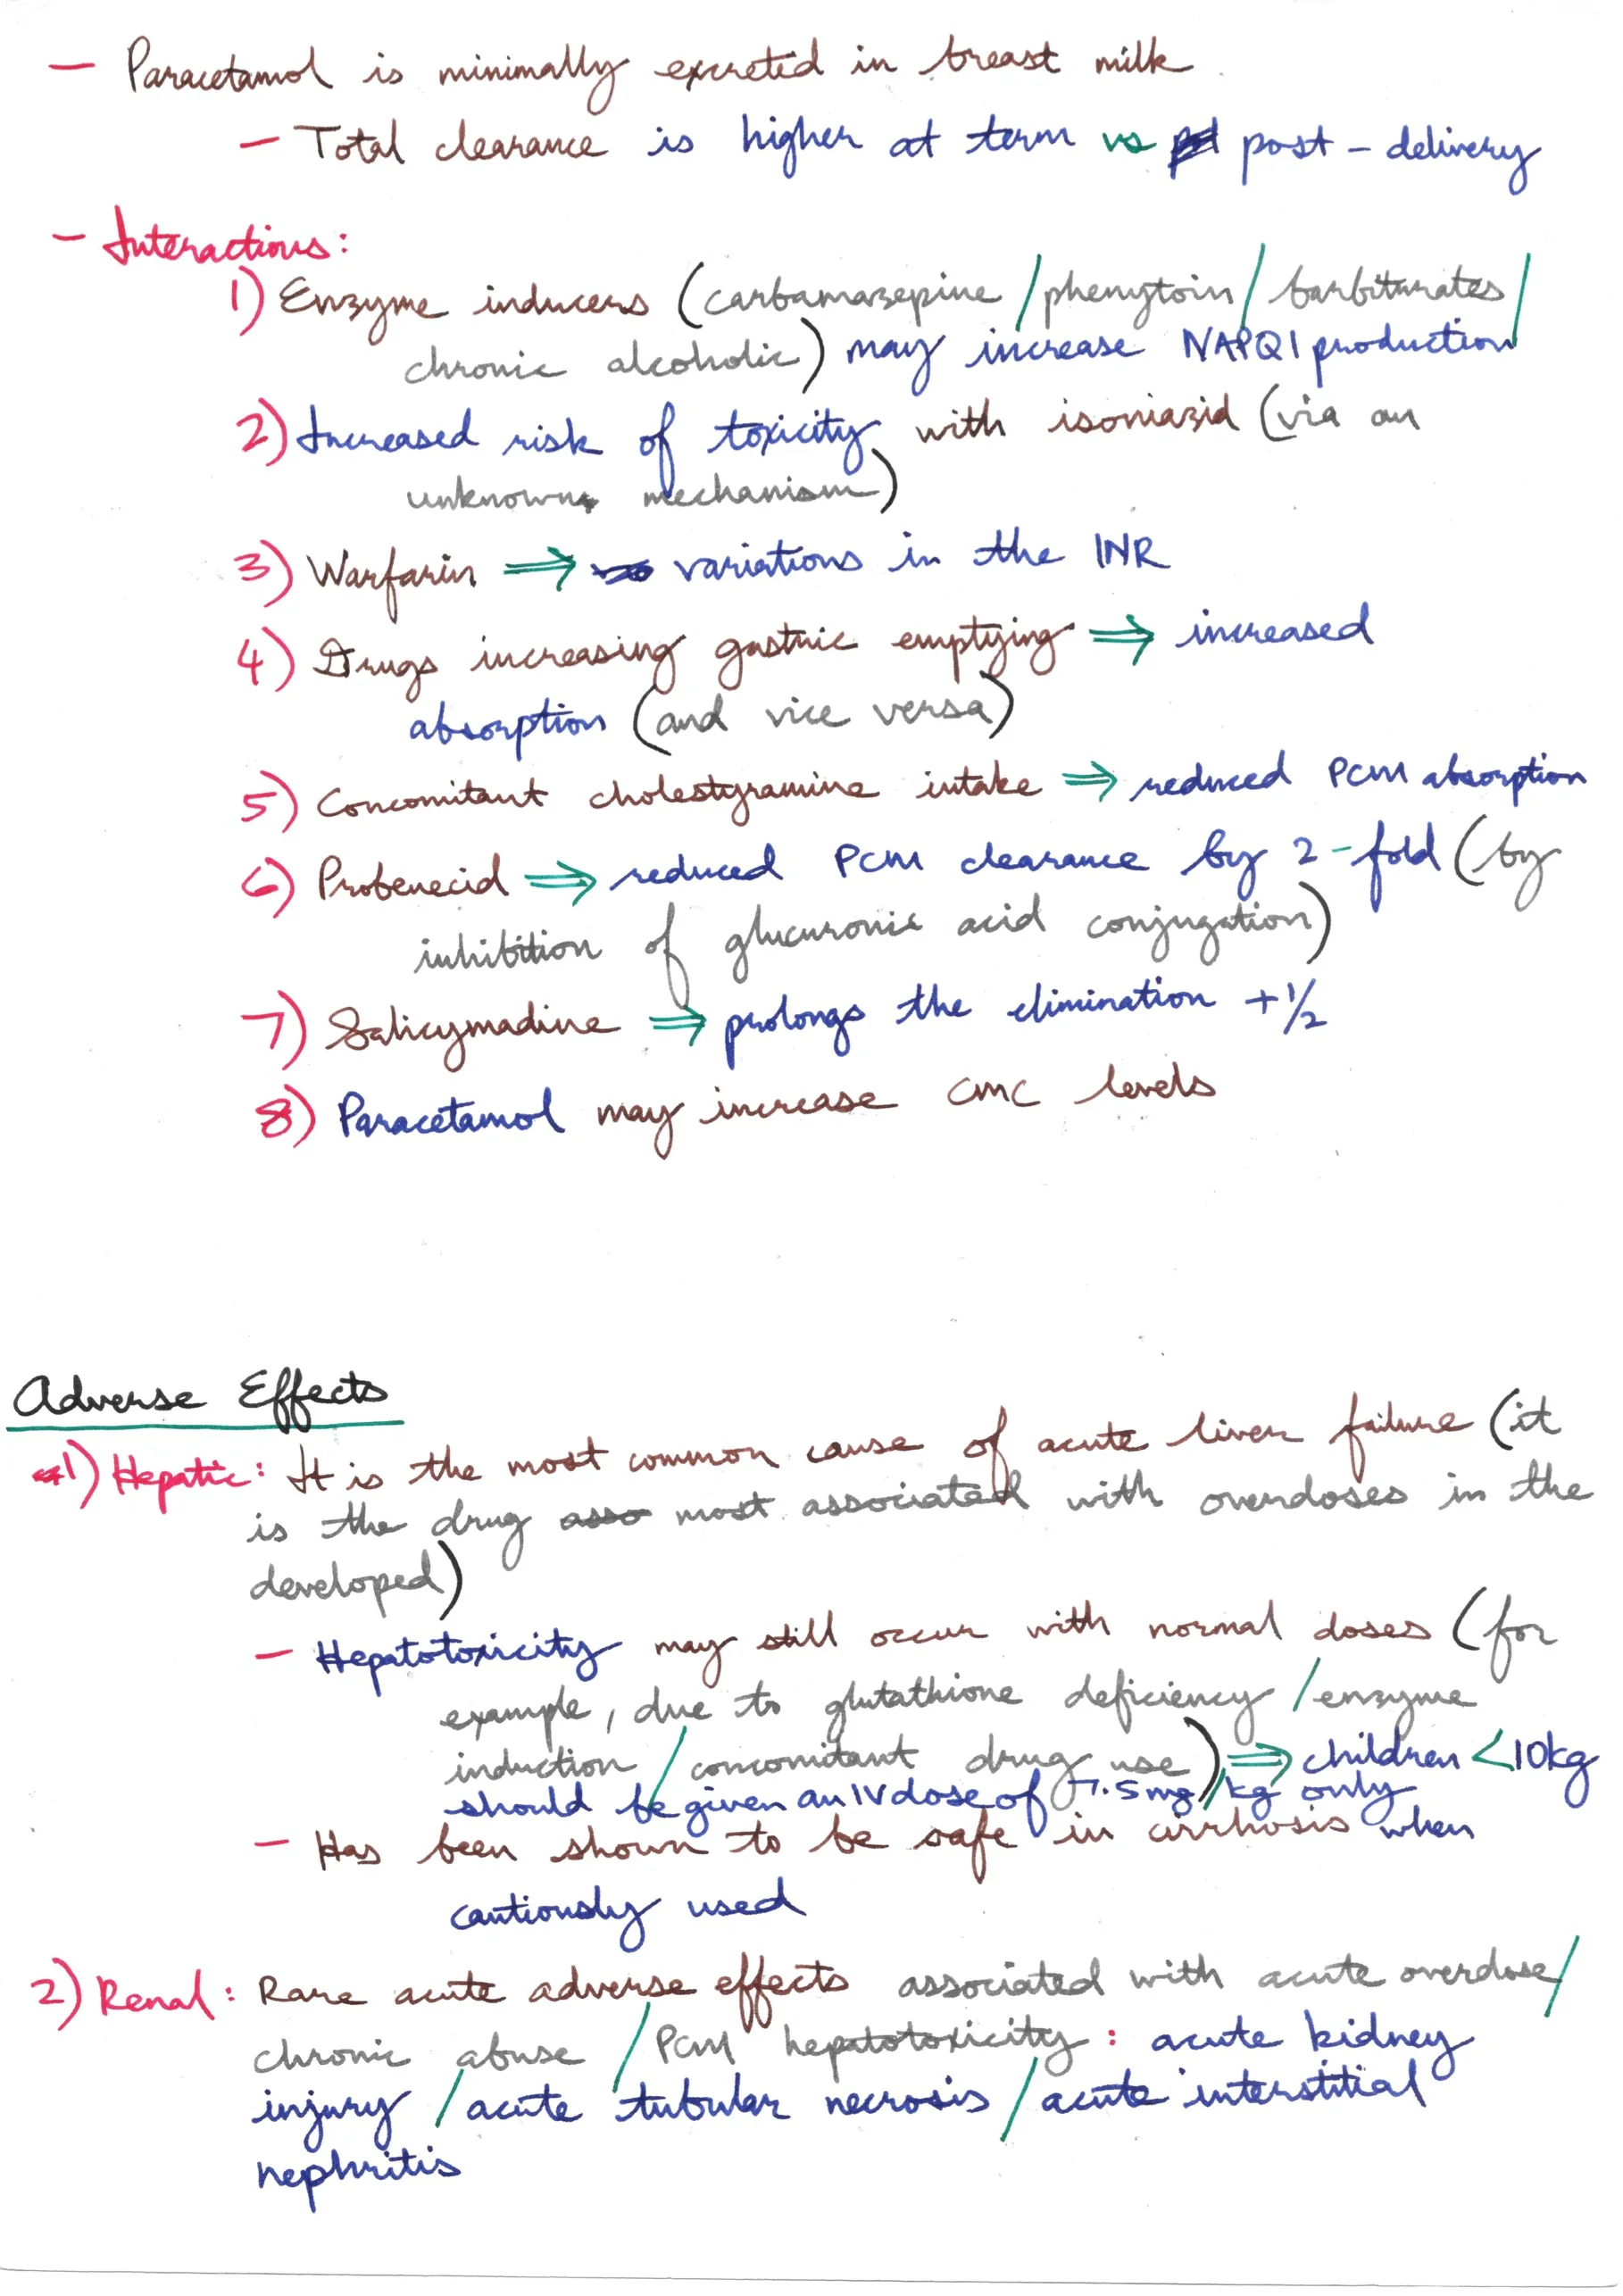 - Paracetamol is minimally excreted in breast milk
- Total clearance is higher at term vs post-delivery
- Interactions:
1) Enzyme inducers (carbamazepine / phenytoin / barbiturates /
chronic alcoholic) may increase NAPQI production
2) Increased risk of toxicity with isoniazid (via an
unknown mechanism)
3) Warfarin ⇒ variations in the INR
4) Drugs increasing gastric emptying ⇒ increased
absorption (and vice versa)
5) Concomitant cholestyramine intake ⇒ reduced PCM absorption
6) Probenecid ⇒ reduced PCM clearance by 2-fold (by
inhibition of glucuronic acid conjugation)
7) Salicymadine ⇒ prolongs the elimination t1/2
8) Paracetamol may increase CMC levels
Adverse Effects
1) Hepatic: It is the most common cause of acute liver failure (it
is the drug most associated with overdoses in the
developed)
- Hepatotoxicity may still occur with normal doses (for
example, due to glutathione deficiency / enzyme
induction / concomitant drug use) ⇒ children <10kg
should be given an IV dose of 7.5mg/kg only
- Has been shown to be safe in cirrhosis when
cautiously used
2) Renal: Rare acute adverse effects associated with acute overdose /
chronic abuse / PCM hepatotoxicity: acute kidney
injury / acute tubular necrosis / acute interstitial
nephritis